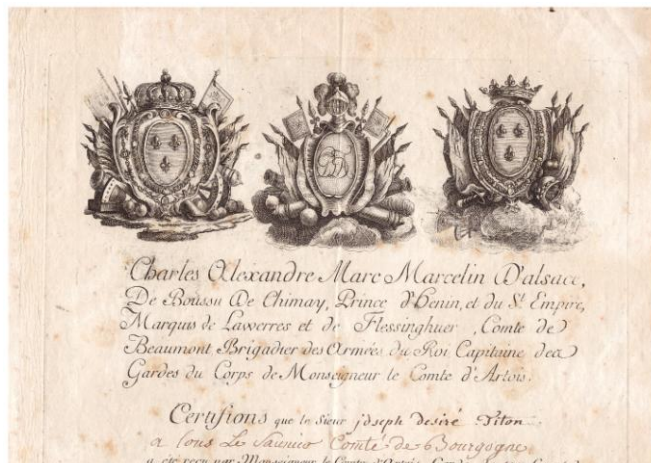 Charles Alexandre Marc Marcelin D'alsace,
De Boussu De Chimay, Prince d'Henin, et du St. Empire,
Marquis de Laverres et de Flessinghuer, Comte de
Beaumont Brigadier des Armées du Roi Capitaine des
Gardes du Corps de Monseigneur le Comte d'Artois.
Certifions que le Sieur joseph desiré Piton
a lons Le Saunier Comté de Bourgogne
a été reçu par Monseigneur le Comte d'Artois